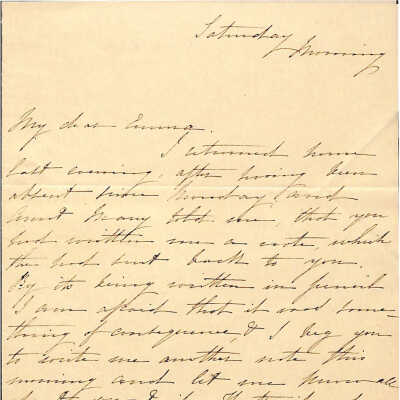 Saturday
Morning
My dear Emma.
I returned home
last evening, after having been
absent since Monday, and
Aunt Mary told me, that you
had written me a note, which
she had sent back to you.
By its being written in pencil
I am afraid that it was some-
thing of consequence, & I beg you
to write me another note this
morning and let me know all